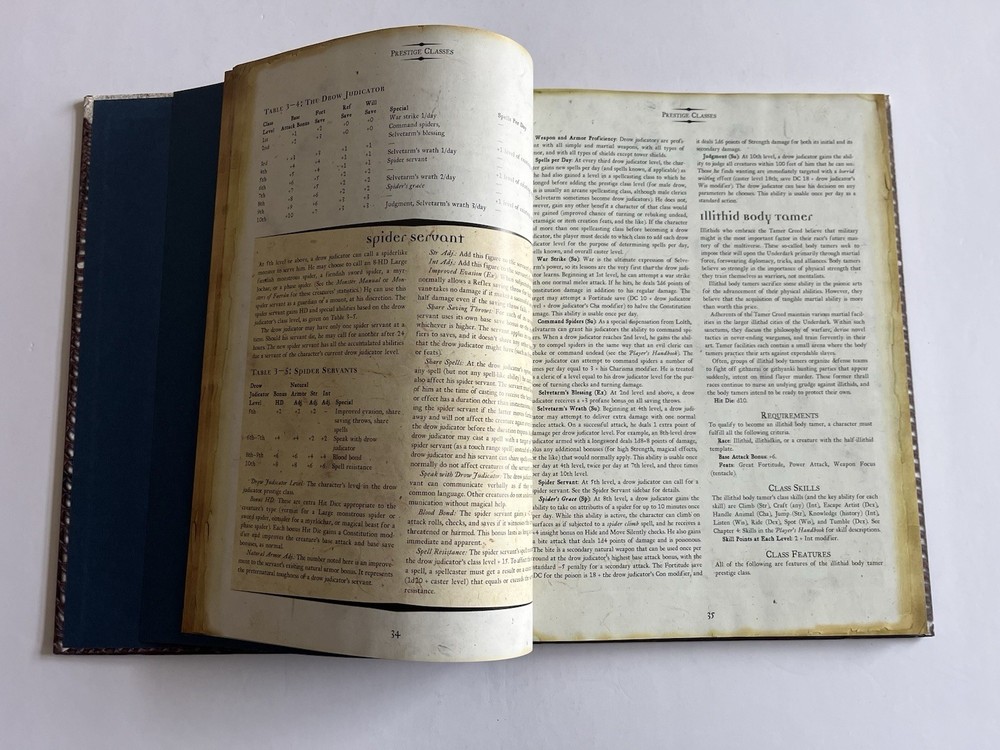 Prestige Classes
Table 3–4: The Drow Judicator
Class Base Fort Ref Will
Level Attack Bonus Save Save Save Special Spells Per Day
War strike 1/day
Command spiders,
Selvetarm's blessing
Selvetarm's wrath 1/day
Spider servant
Selvetarm's wrath 2/day
Spider's grace
Judgment, Selvetarm's wrath 3/day
spider servant
At 5th level or above, a drow judicator can call a spiderlike
monster to serve him. He may choose to call an 8-HD Large
fiendish monstrous spider, a fiendish sword spider, a myr-
lochar, or a phase spider (See the Monster Manual or Mon-
sters of Faerûn for these creatures' statistics.) He can use this
spider servant as a guardian or a mount, at his discretion. The
spider servant gains HD and special abilities based on the drow
judicator's class level, as given on Table 3–5.
The drow judicator may have only one spider servant at a
time. Should his servant die, he may call for another after 24
hours. The new spider servant has all the accumulated abilities
for a servant of the character's current drow judicator level.
Table 3–5: Spider Servants
Drow
Judicator Bonus Natural Str Int
Level HD Armor Adj. Adj. Adj. Special
Improved evasion, share
saving throws, share
spells
6th–7th Speak with drow
judicator
8th–9th Blood bond
10th Spell resistance
Drow Judicator Level: The character's level in the drow
judicator prestige class.
Bonus HD: These are extra Hit Dice appropriate to the
creature's type (vermin for a Large monstrous spider or
sword spider, outsider for a myrlochar, or magical beast for a
phase spider). Each bonus Hit Die gains a Constitution mod-
ifier and improves the creature's base attack and base save
bonuses, as normal.
Natural Armor Adj: The number noted here is an improve-
ment to the servant's existing natural armor bonus. It represents
the preternatural toughness of a drow judicator's servant.
Str Adj: Add this figure to the
Int Adj: Add this figure to the
Improved Evasion (Ex):
normally allows a Reflex saving
vant takes no damage if it
half damage even if the saving
Share Saving Throws: For each of its
servant uses its own base save
whichever is higher. The servant applies
fiers to saves, and it doesn't share any
that the drow judicator might have
or feats).
Share Spells: At the drow judicator's
any spell (but not any spell-like ability) he
also affect his spider servant. The servant must
of him at the time of casting to receive the
or effect has a duration other than instantaneous,
ing the spider servant if the latter moves
away and will not affect the creature again
the drow judicator before the duration expires.
drow judicator may cast a spell with a target
spider servant (as a touch range spell) instead of
judicator and his servant can share spells
normally do not affect creatures of the servant's
Speak with Drow Judicator: The drow judicator
vant can communicate verbally as if they
common language. Other creatures do not
munication without magical help.
Blood Bond: The spider servant gains a
attack rolls, checks, and saves if it witnesses the
threatened or harmed. This bonus lasts as long as
immediate and apparent.
Spell Resistance: The spider servant's spell
the drow judicator's class level + 15. To affect
a spell, a spellcaster must get a result on a
(1d20 + caster level) that equals or exceeds the
resistance.
34
Prestige Classes
Weapon and Armor Proficiency: Drow judicators are profi-
with all simple and martial weapons, with all types of
armor, and with all types of shields except tower shields.
Spells per Day: At every third drow judicator level, the char-
gains new spells per day (and spells known, if applicable) as
he had also gained a level in a spellcasting class to which he
longed before adding the prestige class level (for male drow,
is usually an arcane spellcasting class, although male clerics
Selvetarm sometimes become drow judicators). He does not,
however, gain any other benefit a character of that class would
gained (improved chance of turning or rebuking undead,
metamagic or item creation feats, and the like). If the character
more than one spellcasting class before becoming a drow
judicator, the player must decide to which class to add each drow
judicator level for the purpose of determining spells per day,
spells known, and overall caster level.
War Strike (Su): War is the ultimate expression of Selve-
tarm's power, so its lessons are the very first that the drow judi-
cator learns. Beginning at 1st level, he can attempt a war strike
with one normal melee attack. If he hits, he deals 1d6 points of
Constitution damage in addition to his regular damage. The
target may attempt a Fortitude save (DC 10 + drow judicator
level + drow judicator's Cha modifier) to halve the Constitution
damage. This ability is usable once per day.
Command Spiders (Su): As a special dispensation from Lolth,
Selvetarm can grant his judicators the ability to command spi-
ders. When a drow judicator reaches 2nd level, he gains the abil-
ity to compel spiders in the same way that an evil cleric can
rebuke or command undead (see the Player's Handbook). The
drow judicator can attempt to command spiders a number of
times per day equal to 3 + his Charisma modifier. He is treated
as a cleric of a level equal to his drow judicator level for the pur-
pose of turning checks and turning damage.
Selvetarm's Blessing (Ex): At 2nd level and above, a drow
judicator receives a +3 profane bonus on all saving throws.
Selvetarm's Wrath (Su): Beginning at 4th level, a drow judi-
cator may attempt to deliver extra damage with one normal
melee attack. On a successful attack, he deals 1 extra point of
damage per drow judicator level. For example, an 8th-level drow
judicator armed with a longsword deals 1d8+8 points of damage,
plus any additional bonuses (for high Strength, magical effects,
or the like) that would normally apply. This ability is usable once
per day at 4th level, twice per day at 7th level, and three times
per day at 10th level.
Spider Servant: At 5th level, a drow judicator can call for a
spider servant. See the Spider Servant sidebar for details.
Spider's Grace (Sp): At 8th level, a drow judicator gains the
ability to take on attributes of a spider for up to 10 minutes once
per day. While this ability is active, the character can climb on
surfaces as if subjected to a spider climb spell, and he receives a
+4 insight bonus on Hide and Move Silently checks. He also gains
a bite attack that deals 1d4 points of damage and is poisonous.
The bite is a secondary natural weapon that can be used once per
round at the drow judicator's highest base attack bonus, with the
standard –5 penalty for a secondary attack. The Fortitude save
DC for the poison is 18 + the drow judicator's Con modifier, and
it deals 1d6 points of Strength damage for both its initial and its
secondary damage.
Judgment (Su): At 10th level, a drow judicator gains the abil-
ity to judge all creatures within 100 feet of him that he can see.
Those he finds wanting are immediately targeted with a horrid
wilting effect (caster level 18th; save DC 18 + drow judicator's
Wis modifier). The drow judicator can base his decision on any
parameters he chooses. This ability is usable once per day as a
standard action.
illithid body tamer
Illithids who embrace the Tamer Creed believe that military
might is the most important factor in their race's future mas-
tery of the multiverse. These so-called body tamers seek to
impose their will upon the Underdark primarily through martial
force, forswearing diplomacy, tricks, and alliances. Body tamers
believe so strongly in the importance of physical strength that
they train themselves as warriors, not mentalists.
Illithid body tamers sacrifice some ability in the psionic arts
for the advancement of their physical abilities. However, they
believe that the acquisition of tangible martial ability is more
than worth this price.
Adherents of the Tamer Creed maintain various martial facil-
ities in the larger illithid cities of the Underdark. Within such
sanctums, they discuss the philosophy of warfare, devise novel
tactics in never-ending wargames, and train fervently in their
art. Tamer facilities each contain a small arena where the body
tamers practice their arts against expendable slaves.
Often, groups of illithid body tamers organize defense teams
to fight off githzerai or githyanki hunting parties that appear
suddenly, intent on mind flayer murder. These former thrall
races continue to nurse an undying grudge against illithids, and
the body tamers intend to be ready to protect their own.
Hit Die: d10.
Requirements
To qualify to become an illithid body tamer, a character must
fulfill all the following criteria.
Race: Illithid, illithilkin, or a creature with the half-illithid
template.
Base Attack Bonus: +6.
Feats: Great Fortitude, Power Attack, Weapon Focus
(tentacle).
Class Skills
The illithid body tamer's class skills (and the key ability for each
skill) are Climb (Str), Craft (any) (Int), Escape Artist (Dex),
Handle Animal (Cha), Jump (Str), Knowledge (history) (Int),
Listen (Wis), Ride (Dex), Spot (Wis), and Tumble (Dex). See
Chapter 4: Skills in the Player's Handbook for skill descriptions.
Skill Points at Each Level: 2 + Int modifier.
Class Features
All of the following are features of the illithid body tamer
prestige class.
35